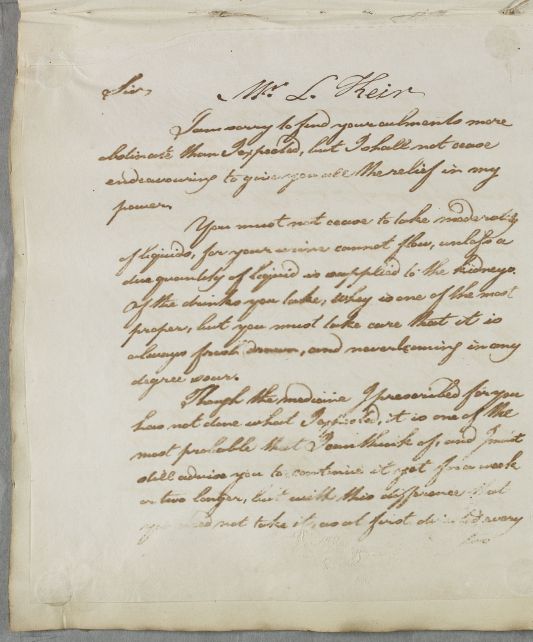 Sir, Mr. L. Keir
I am sorry to find your ailments more
obstinate than I expected, but I shall not cease
endeavouring to give you all the relief in my
power.
You must not cease to take moderately
of liquids, for your urine cannot flow, unless a
due quantity of liquid is supplied to the kidneys.
Of the drinks you take, whey is one of the most
proper, but you must take care that it is
always fresh drawn, and never leaning in any
degree sour.
Though the medicine I prescribed for you
has not done what I expected, it is one of the
most probable that I can think of, and I must
still advise you to continue it yet for a week
or two longer, but with this difference that
you need not take it, as at first directed every
two